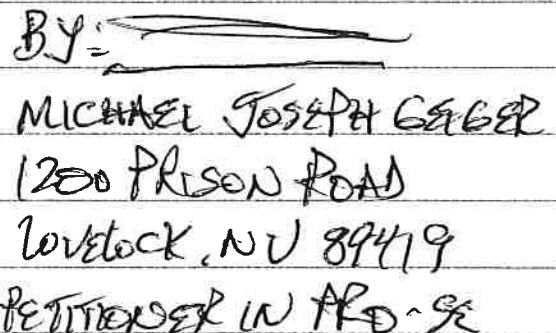 BY:
MICHAEL JOSEPH GEIGER
1200 PRISON ROAD
LOVELOCK, NV 89419
PETITIONER IN PRO-SE